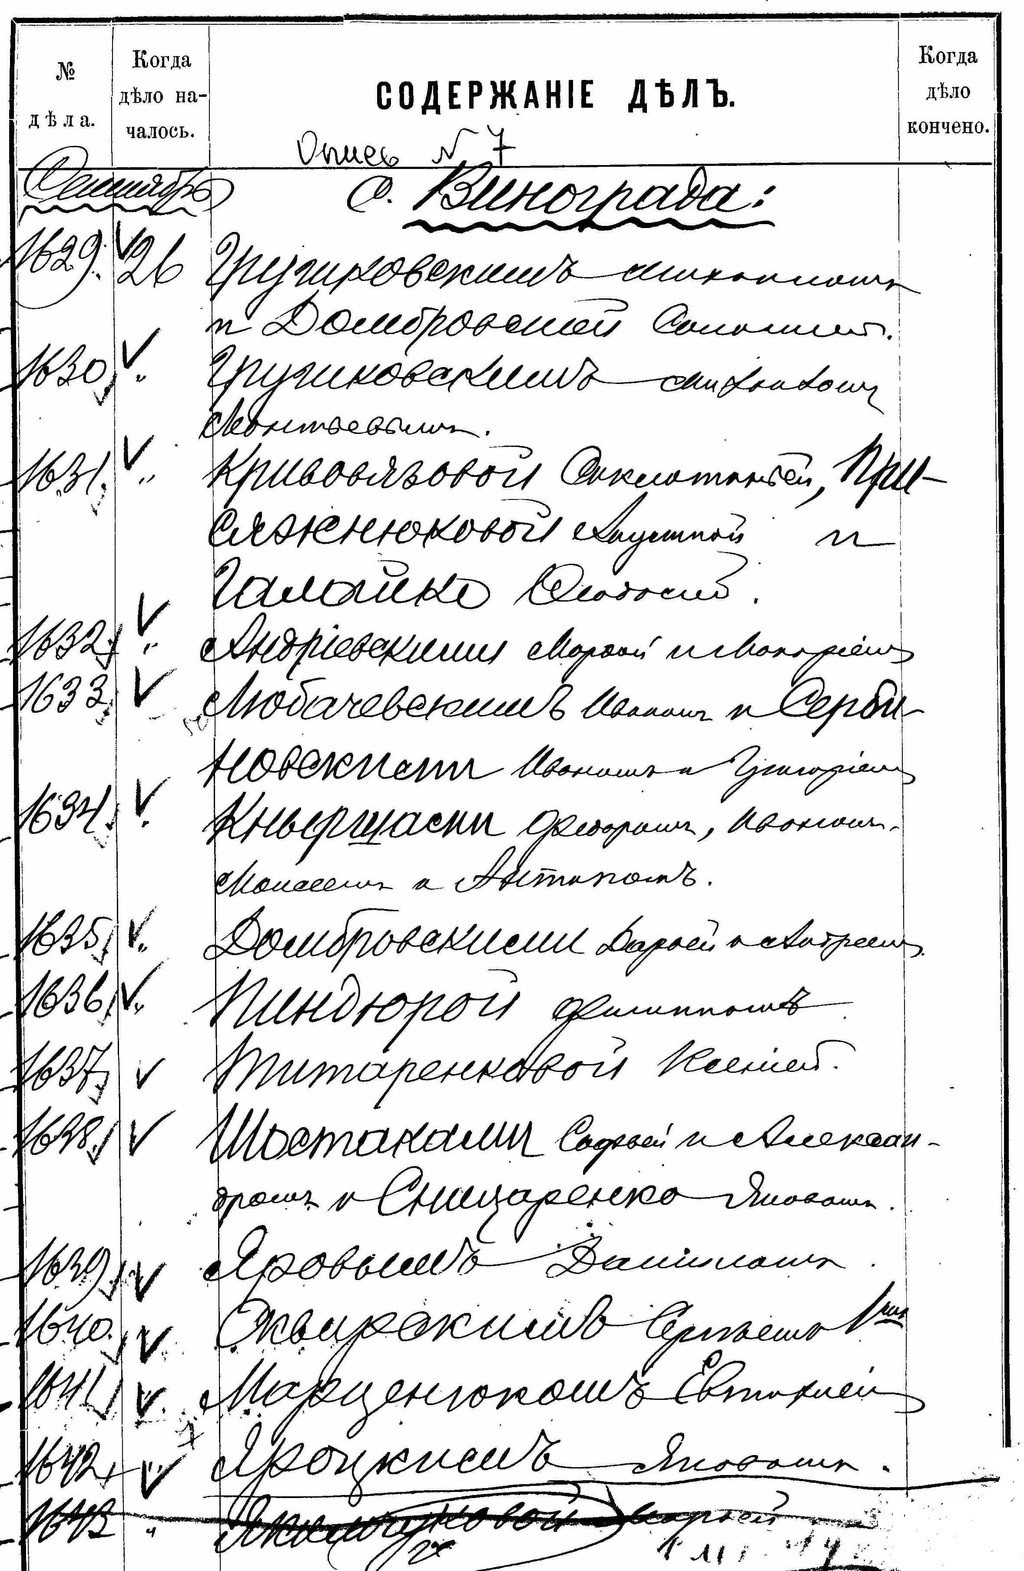 № дѣла.
Когда дѣло началось.
СОДЕРЖАНІЕ ДѢЛЪ.
Когда дѣло кончено.
Опись N 7
Сентябрь
с. Винограда:
1629. 26 Грузиковскимъ
и Домбровской Соломіей.
1630. " Грузиковскимъ Михаиломъ
Леонтьевымъ.
1631. " Кривовязовой, При-
сяжнюковой и
Галайко Ѳеодосій.
1632. " Андріевскими Марѳой и Макаріемъ
1633. Любачевскимъ Иваномъ и Серби-
новскими Иваномъ и Григоріемъ
1634. Федоромъ, Иваномъ,
Моисеемъ и Антипомъ.
1635. " Домбровскими Дарьей и Андреемъ
1636. " Пиндюрой Филиппомъ
1637. Титаренковой Ксеніей.
1638. Шостаками Софьей и Алексан-
дромъ и Сницаренко Яковомъ.
1639. Яровымъ Даніиломъ.
1640. Сквирскимъ Сергѣемъ 1мъ
1641. Марценюкомъ Евтихіемъ
1642. " Яроцкимъ Яковомъ.
1643 " Марѳой